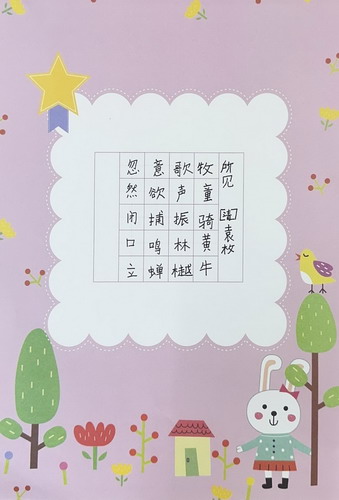 所见 [清] 袁枚
牧童骑黄牛
歌声振林樾
意欲捕鸣蝉
忽然闭口立